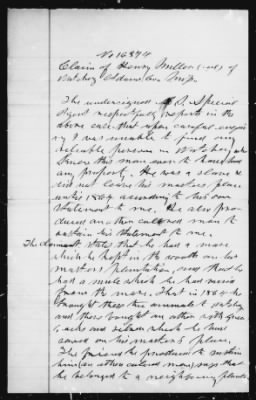 No 16874
Claim of Henry Miller (col) of
Natchez Adams Co. Miss.
The undersigned Special
Agent respectfully reports in the
above case that upon careful enquiry
I was unable to find any
reliable person in Natchez who
knew this man ever to have had
any property. He was a slave &
did not leave his masters place
until 1864 according to his own
statement to me. He also pro-
duced another colored man to
sustain his statement to me.
The claimant states that he had a mare
which he kept in the woods on his
masters plantation, and that he
had a mule which he had raised
from the mare. That in 1864 he
brought these two animals to Natchez
and there bought an other with
and silver which he had
earned on his masters place.
The friend he produced to sustain
him (an other colored man) says that
he belonged to a neighboring planter